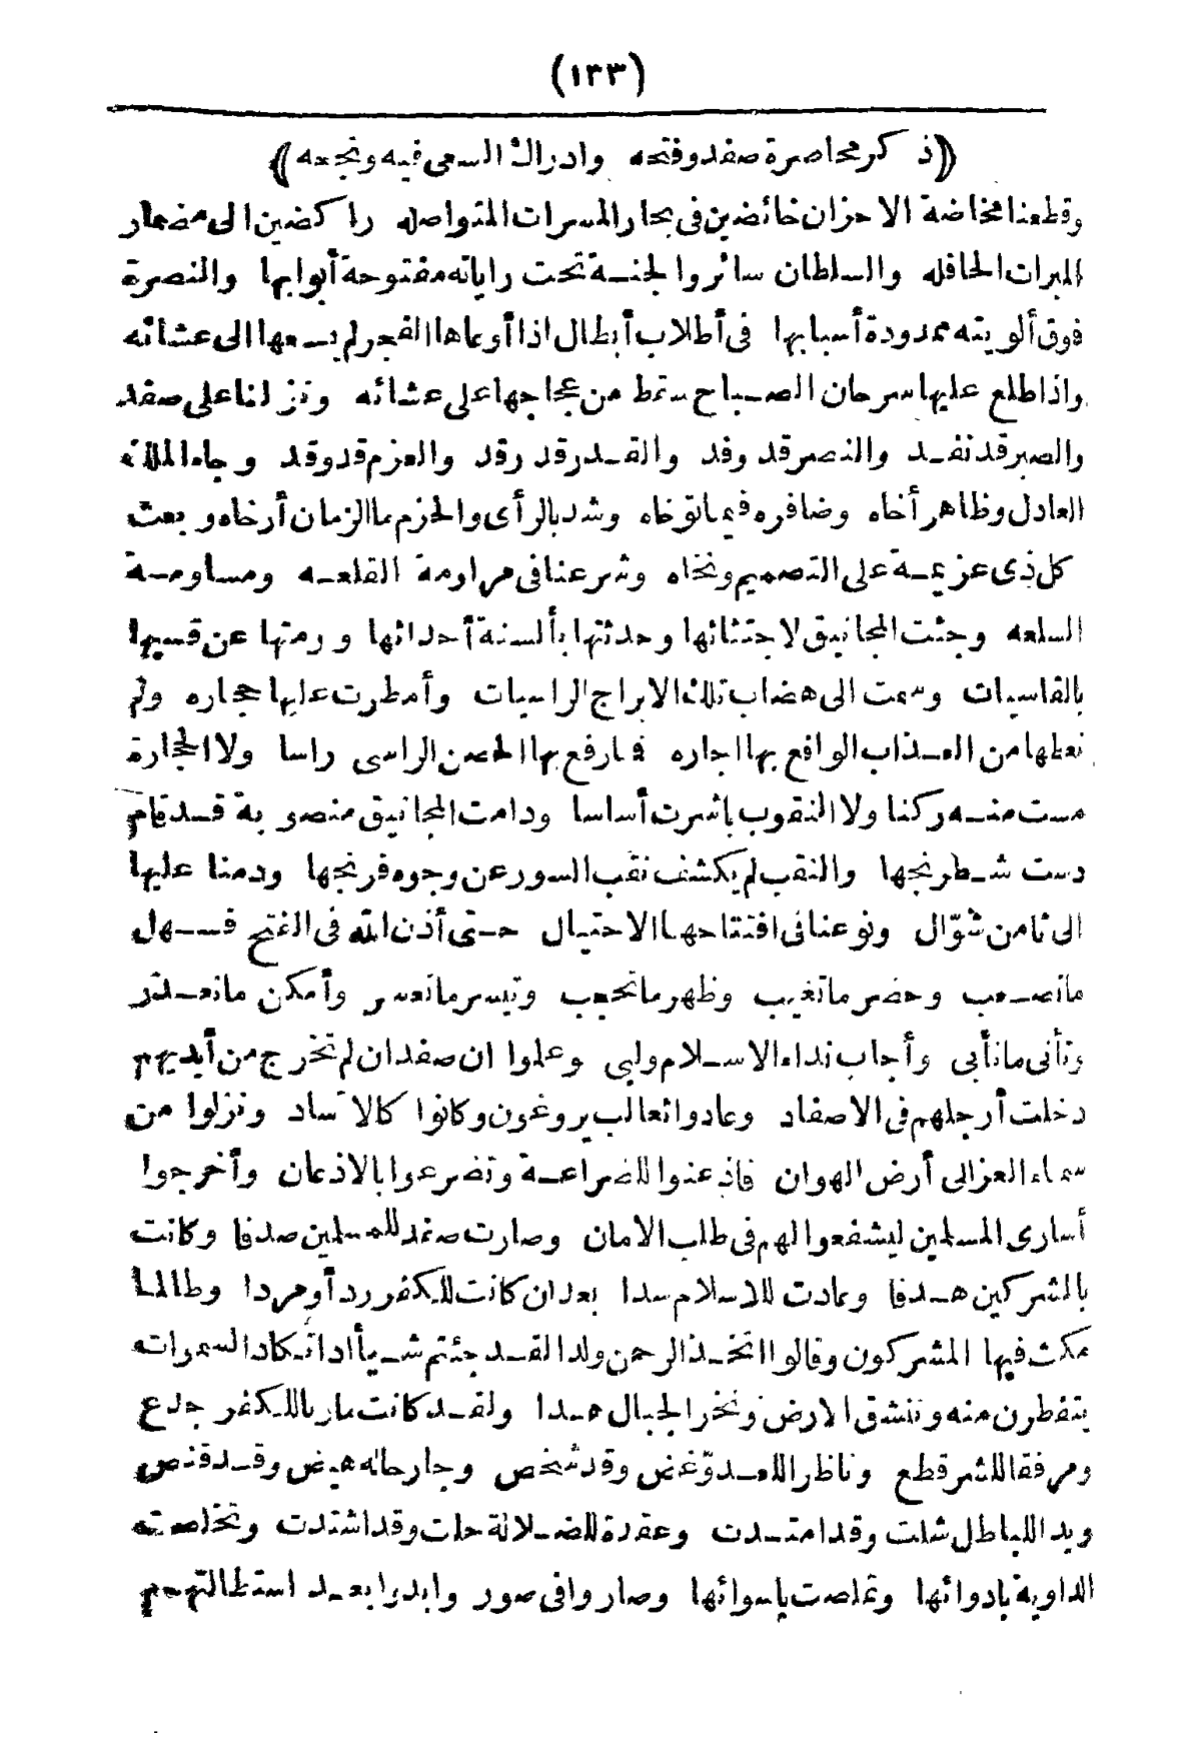 (١٣٣)
((ذكر محاصرة صفد وفتحه وادراك السعى فيه ونجحه))
وقطعنا مخاضة الاحزان خائضين فى بحار المسرات المتواصله راكضين الى مضمار
المبرات الحافله والسلطان سائر والجنة تحت راياته مفتوحة أبوابها والنصرة
فوق ألويته ممدودة أسبابها فى أطلاب أبطال اذا أوعاها الفجر لم يسعها الى عشائه
واذا طلع عليها سرحان الصباح سقط من عجاجها على عشائه ونزلنا على صفد
والصبر قد نفد والنصر قد وفد والقدر قد رقد والعزم قد وقد وجاء الملك
العادل وظاهر أخاه وضافره فيما توخاه وشد بالرأى والحزم ما الزمان أرخاه وبعث
كل ذى عزيمة على التصميم ونخاه وشرعنا فى مراومة القلعه ومساومة
السلعه وجثت المجانيق لاجتثاثها وحدثتها بألسنة أحداثها ورمتها عن قسيها
بالقاسيات وسمت الى هضاب تلك الابراج الراسيات وأمطرت عليها حجاره ولم
نعطها من العذاب الواقع بها اجاره فما رفع بها الحصن الراسى راسا ولا الحجارة
مست منه ركنا ولا النقوب باشرت أساسا ودامت المجانيق منصوبة قد قام
دست شطرنجها والنقب لم يكشف نقب السور عن وجوه فرنجها ودمنا عليها
الى ثامن شوّال ونوعنا فى افتتاحها الاحتيال حتى أذن الله فى الفتح فسهل
ما تصعب وحضر ما تغيب وظهر ما تحجب وتيسر ما تعسر وأمكن ما تعذر
وتأنى ما تأبى وأجاب نداء الاسلام ولبى وعلموا ان صفد ان لم تخرج من أيديهم
دخلت أرجلهم فى الاصفاد وعادوا ثعالب يروغون وكانوا كالآساد ونزلوا من
سماء العز الى أرض الهوان فاذعنوا للضراعة وتضرعوا بالاذعان وأخرجوا
أسارى المسلمين ليشفعوا لهم فى طلب الامان وصارت صفد للمسلمين صدفا وكانت
بالمشركين هدفا وعادت للاسلام سدا بعد ان كانت للكفر ردأ ومردا وطالما
مكث فيها المشركون وقالوا اتخذ الرحمن ولدا لقد جئتم شيأ ادا تكاد السموات
يتفطرن منه وتنشق الارض وتخر الجبال هدا ولقد كانت مارنا للكفر جدع
ومرفقا للشر قطع وناظرا للعدوّ غض وقد شخص وجارحا له هيض وقد قنص
ويدا للباطل شلت وقد امتدت وعقدة للضلالة حلت وقد اشتدت وتخلصت
الداوية بادوائها وتملصت باسوائها وصاروا فى صور وابدرا بعد استطالتهم